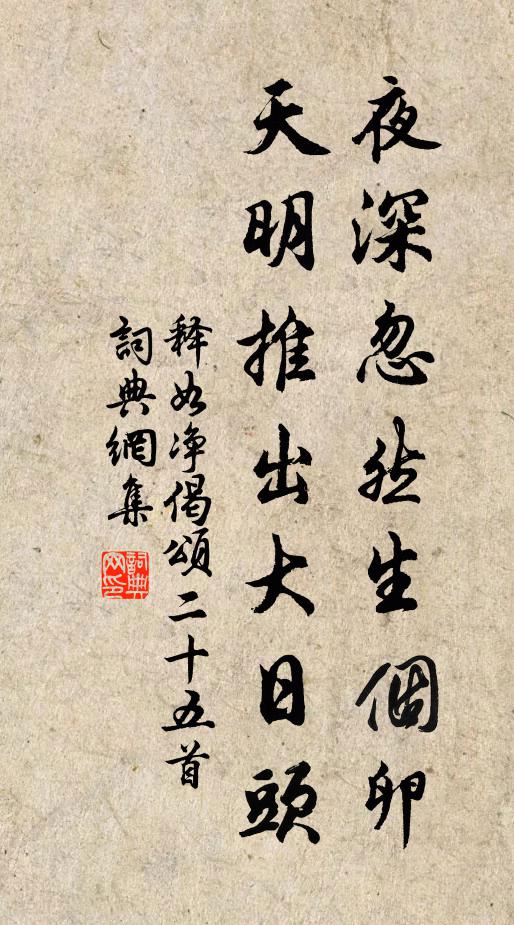 夜深忽然生個卵
天明推出大日頭
释如净偈頌二十五首
詞典網集
詞典网印